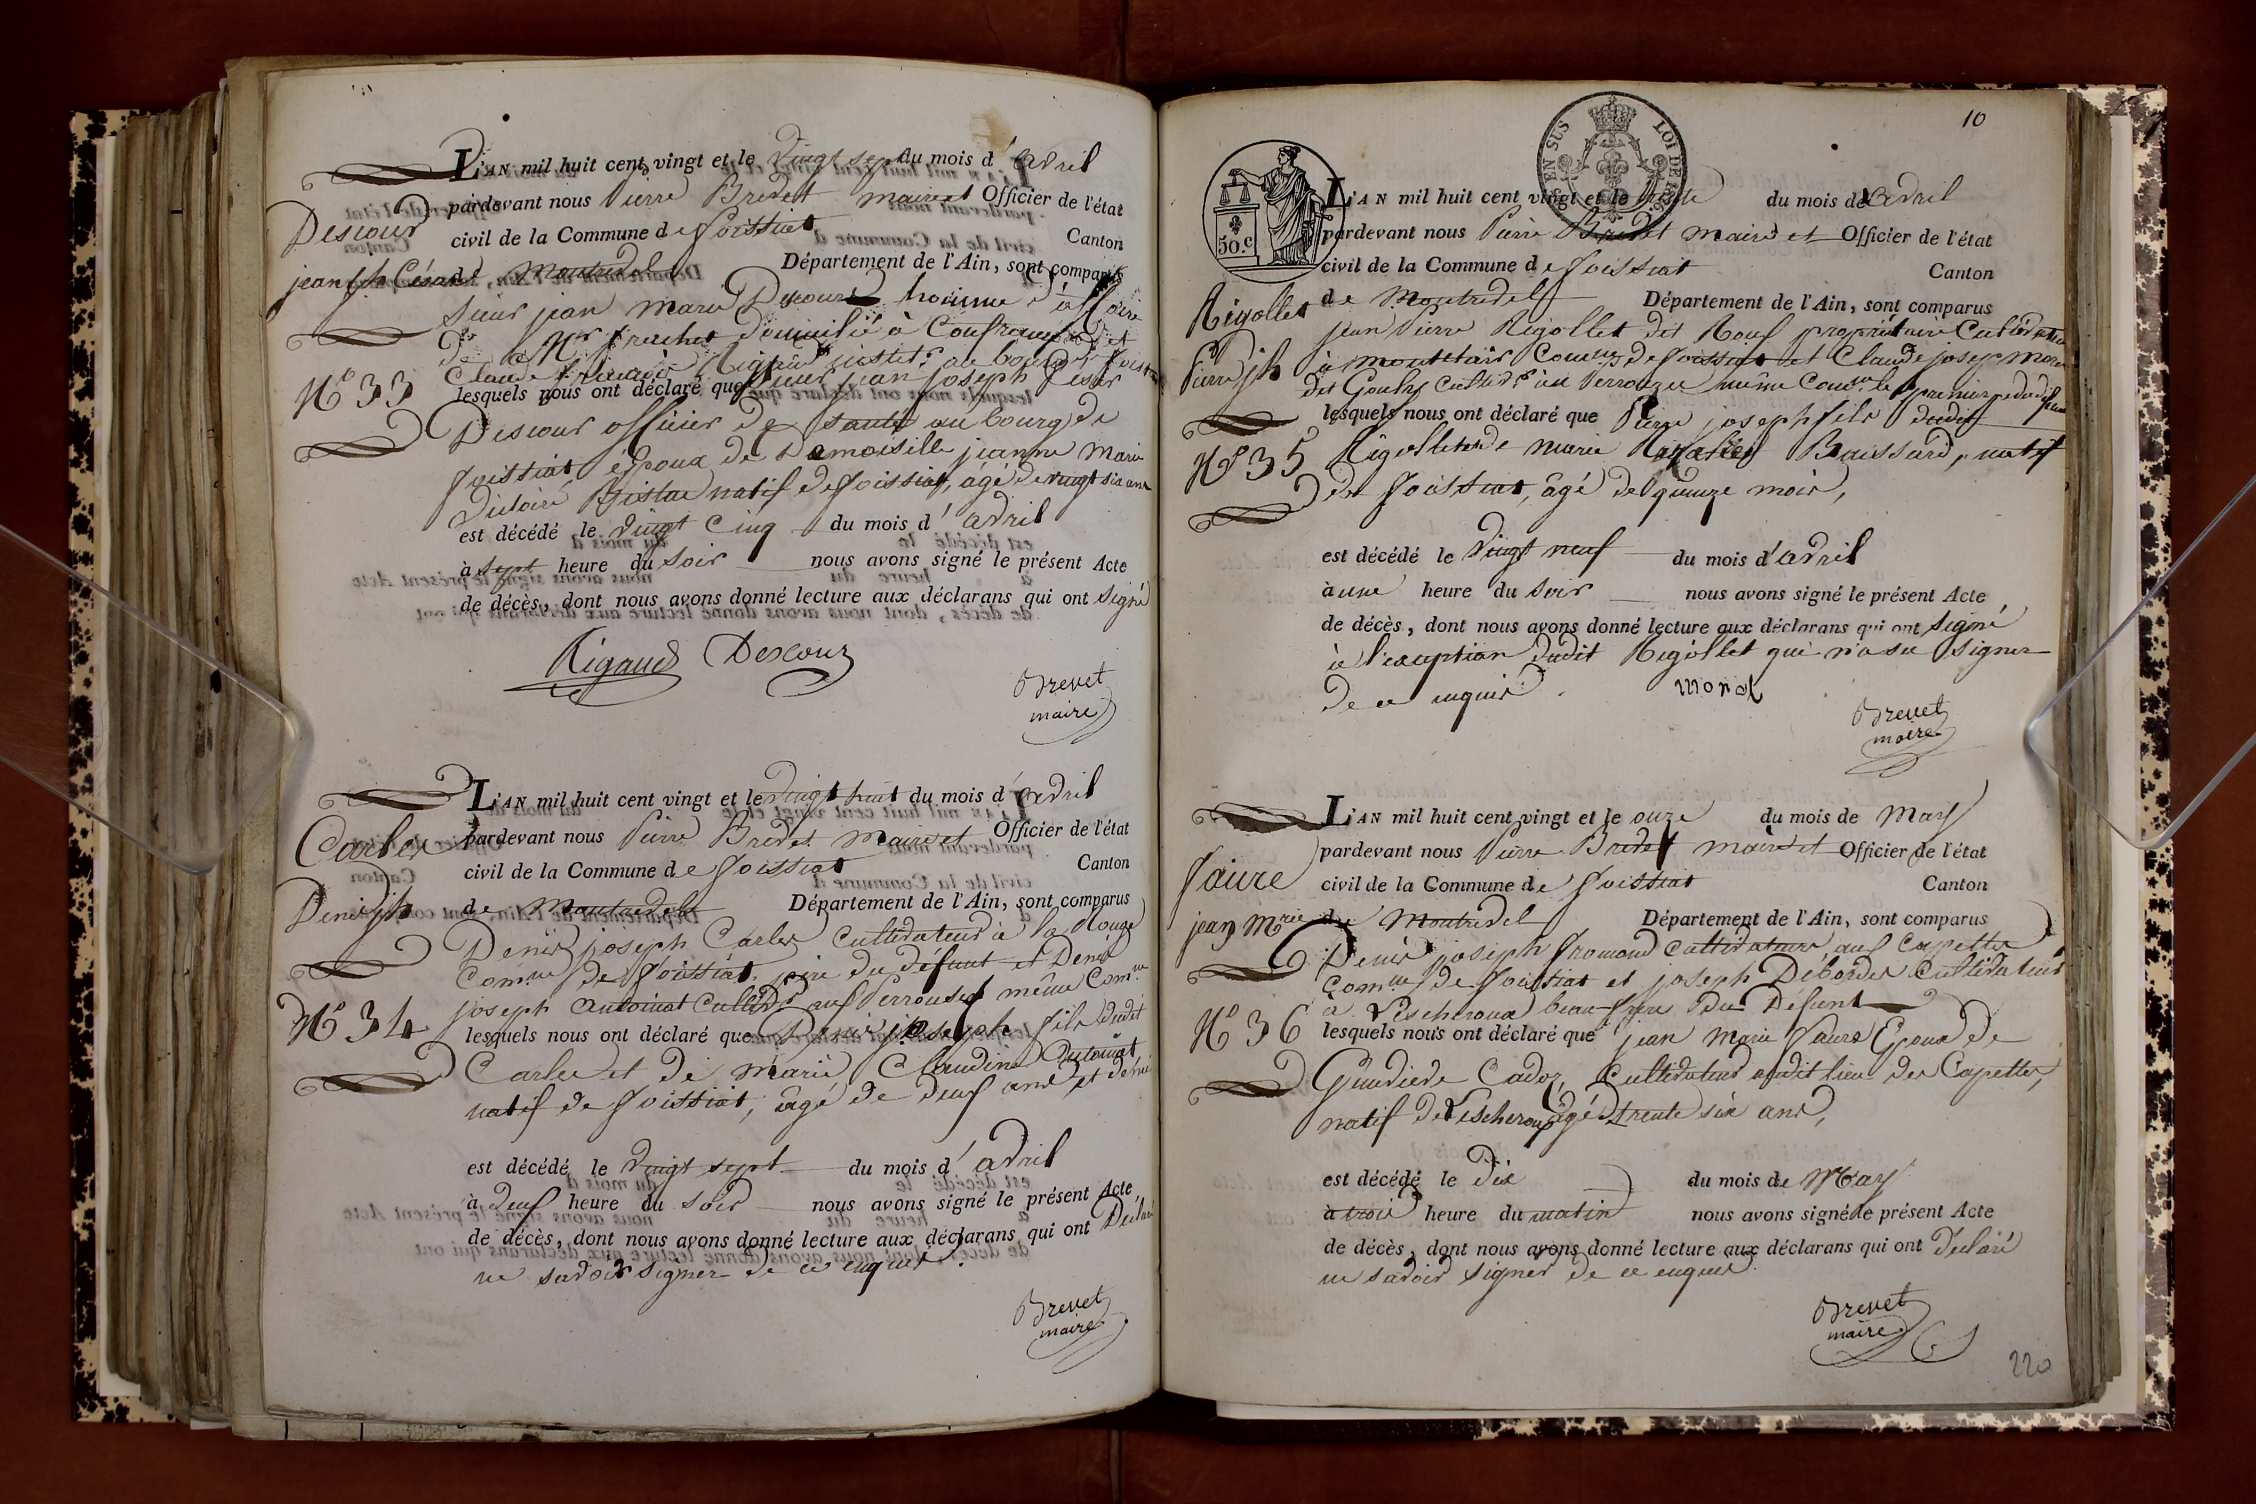 L'AN mil huit cent vingt et le vingt sept du mois d'avril
Descour
pardevant nous Pierre Brevet maire et Officier de l'état
civil de la Commune de foissiat Canton
jean jph César
de Montrevel Département de l'Ain, sont comparus
Sieur jean marie Descour homme d'affaire
de Mr domicilié à Coufranc et
Claude Rigaud
N° 33
lesquels nous ont déclaré que Sieur jean joseph César
Descour officier de santé au bourg de
foissiat époux de Demoiselle jeanne Marie
natif de foissiat, âgé de vingt six ans
est décédé le vingt cinq du mois d'avril
à sept heure du soir nous avons signé le présent Acte
de décès, dont nous avons donné lecture aux déclarans qui ont signé
Rigaud Descour
Brevet
maire
L'AN mil huit cent vingt et le vingt huit du mois d'avril
Carlet
pardevant nous Pierre Brevet Maire et Officier de l'état
civil de la Commune de foissiat Canton
Denis jph
de Montrevel Département de l'Ain, sont comparus
Denis joseph Carlet cultivateur à la Rouge
Comne de foissiat, père du défunt et Denis
joseph Antoinat Cultivr aux Perrouses même Comne
N° 34
lesquels nous ont déclaré que Denis joseph fils dudit
Carlet et de marie Claudine Antoinat
natif de foissiat, âgé de deux ans et demi
est décédé le vingt sept du mois d'avril
à deux heure du soir nous avons signé le présent Acte
de décès, dont nous avons donné lecture aux déclarans qui ont Déclaré
ne savoir signer de ce enquis.
Brevet
maire
10
EN SUS
LOI DE 1816
50.c
L'AN mil huit cent vingt et le trente du mois de avril
pardevant nous Pierre Brevet maire et Officier de l'état
civil de la Commune de foissiat Canton
Rigollet
de Montrevel Département de l'Ain, sont comparus
jean Pierre Rigollet dit Rouf propriétaire Cultivateur
Pierre jph
à montclair Comne de foissiat et Claude josep Morel
dit Gouly cultivr aux Perrouzes même Comne le premier père du défunt
lesquels nous ont déclaré que Pierre joseph fils dudit
N° 35
Rigollet et de marie Baissard, natif
de foissiat, âgé de quinze mois,
est décédé le vingt neuf du mois d'avril
à une heure du soir nous avons signé le présent Acte
de décès, dont nous avons donné lecture aux déclarans qui ont signé
à l'exception dudit Rigollet qui n'a su signer
de ce enquis. morel
Brevet
maire
L'AN mil huit cent vingt et le onze du mois de May
pardevant nous Pierre Brevet maire et Officier de l'état
faure
civil de la Commune de foissiat Canton
jean Mrie
de Montrevel Département de l'Ain, sont comparus
Denis joseph fromond cultivateur aux Capettes
Comne de foissiat et joseph Debordes cultivateur
à Lescheroux beau-frère du Défunt
N° 36
lesquels nous ont déclaré que jean Marie faure Epoux de
Cadoz, Cultivateur audit lieu des Capettes,
natif de Lescheroux âgé de trente six ans,
est décédé le dix du mois de May
à trois heure du matin nous avons signé le présent Acte
de décès, dont nous avons donné lecture aux déclarans qui ont Déclaré
ne savoir signer de ce enquis.
Brevet
maire
220